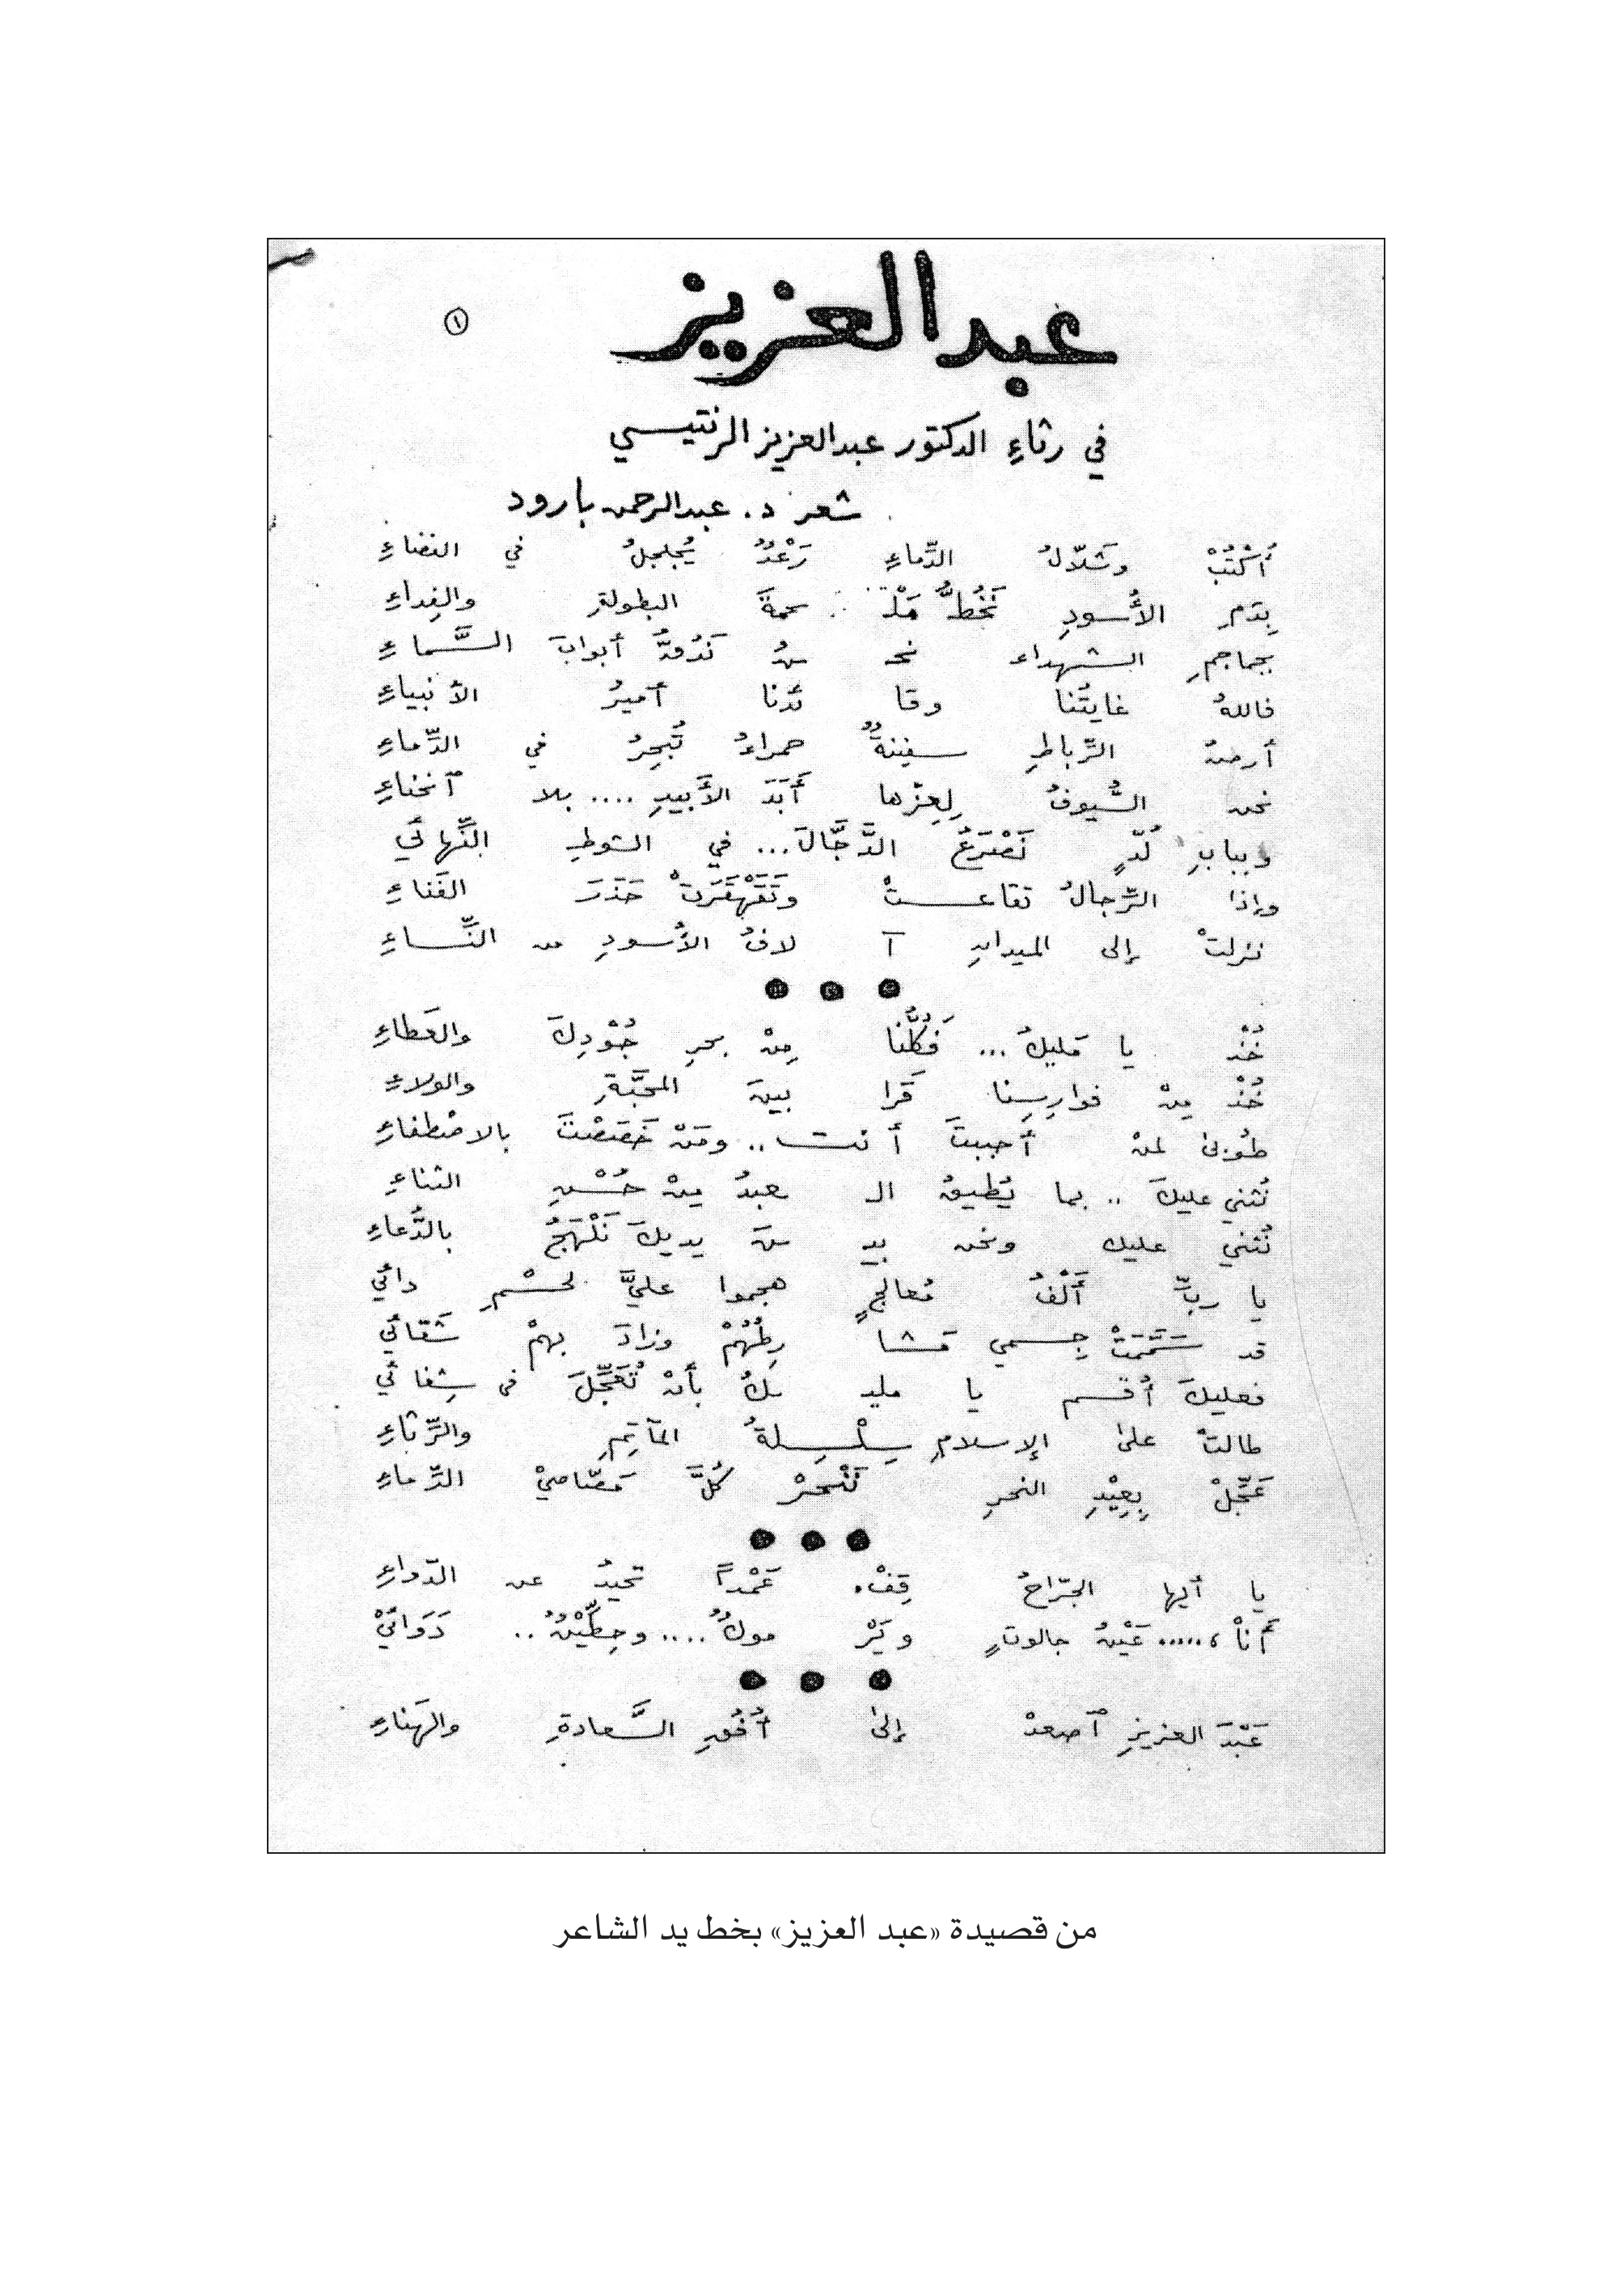 عبد العزيز
١
في رثاءِ الدكتور عبدالعزيز الرنتيسي
شعر د. عبدالرحمن بارود
أُكْتُبْ وشَلّالُ الدِّماءِ رَعْدٌ يُجلجلُ في الفضاءِ
بِدَمِ الأُسودِ نَخُطُّ مَلْـ ـحمةَ البطولةِ والفِداءِ
بجماجمِ الشهداء نحـ ـنُ نَدُقُّ أبوابَ السَّماءِ
فاللهُ غايتُنا وقا ئدُنا أميرُ الأنبياءِ
أرضُ الرِّباطِ سفينةٌ حمراءُ تُبحِرُ في الدِّماءِ
نحن السُّيوفُ لِعِزّها أَبَدَ الأَبيدِ .... بلا ٱنحناءِ
وببابِ لُدٍّ نَصْرَعُ الدَّجَّالَ... في الشوطِ النِّهائي
وإذا الرِّجالُ تقاعستْ وتَقَهْقَرَتْ حَذَرَ الفَناءِ
نزلتْ إلى الميدانِ آ لافُ الأُسودِ من النِّساءِ
خُذْ يا مَليكُ ... فَكُلُّنا مِنْ بحرِ جُوْدِكَ والعَطاءِ
خُذْ مِنْ فوارِسِنا قَرا بينَ المحَبَّةِ والولاءِ
طُوبىٰ لمنْ أحببتَ أنتَ .. ومَنْ خَصَصْتَ بالاصْطفاءِ
نُثني عليكَ .. بما يُطيقُ الـ ـعبدُ مِنْ حُسْنِ الثناءِ
نُثني عليك ونحن بيـ ـنَ يديكَ نَلْهَجُ بالدُّعاءِ
يا ربِّ أَلْفُ مُعالجٍ هجموا عليَّ لحسْمِ دائي
قد سَمَّمَتْ جِسمي مَشا رِطُهُمْ وزادَ بهمْ شَقائي
فعليكَ أُقسم يا مليـ ـكُ بأنْ تُعَجِّلَ في شِفائي
طالتْ علىٰ الإسلامِ سِلْسِلةُ المآتِمِ والرِّثاءِ
عَجِّلْ بِعِيْدِ النحرِ نَنْحرْ كُلَّ مَصّاصيْ الدِّماءِ
يا أيها الجرّاحُ قِفْ. عَمْداً تحيدُ عن الدّواءِ
أَناْ ، ..... عَيْنُ جالوتٍ ويَرْ موكٌ .... وحِطِّيْنٌ .. دَوَائيْ
عَبْدَ العزيزِ ٱصعدْ إلىٰ أُفُقِ السَّعادةِ والهَناءِ
من قصيدة «عبد العزيز» بخط يد الشاعر